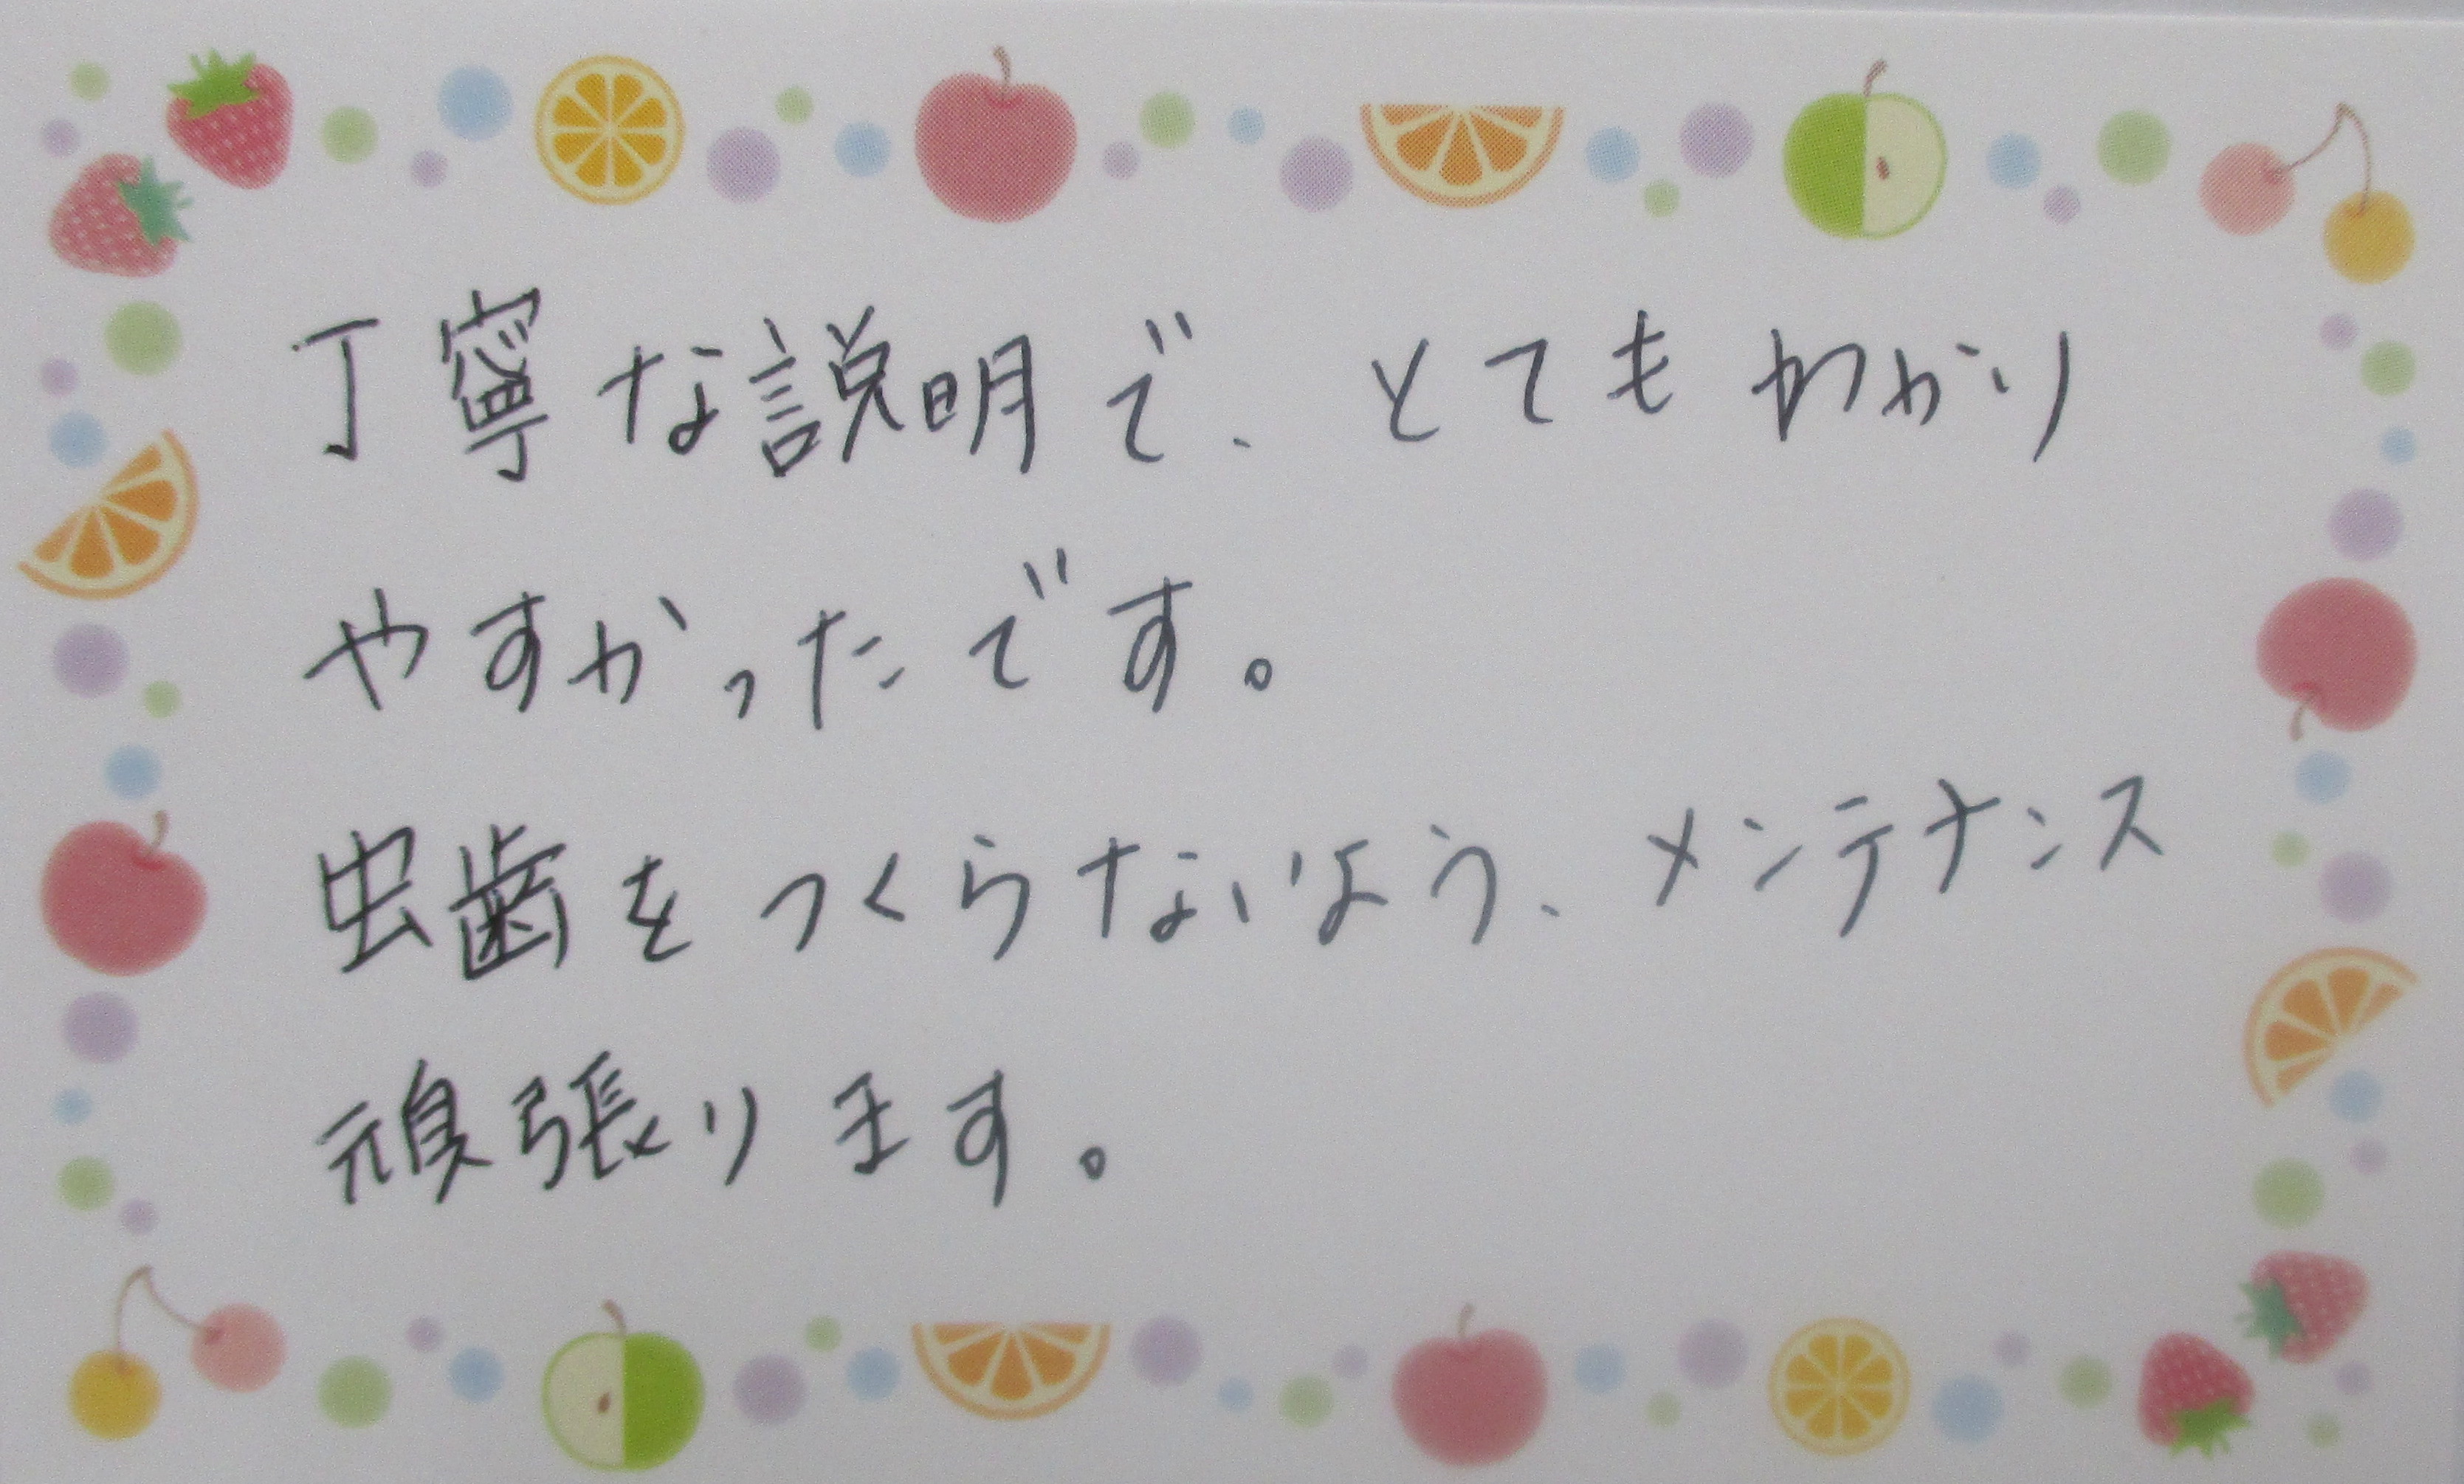 丁寧な説明で、とてもわかり
やすかったです。
虫歯をつくらないよう、メンテナンス
頑張ります。